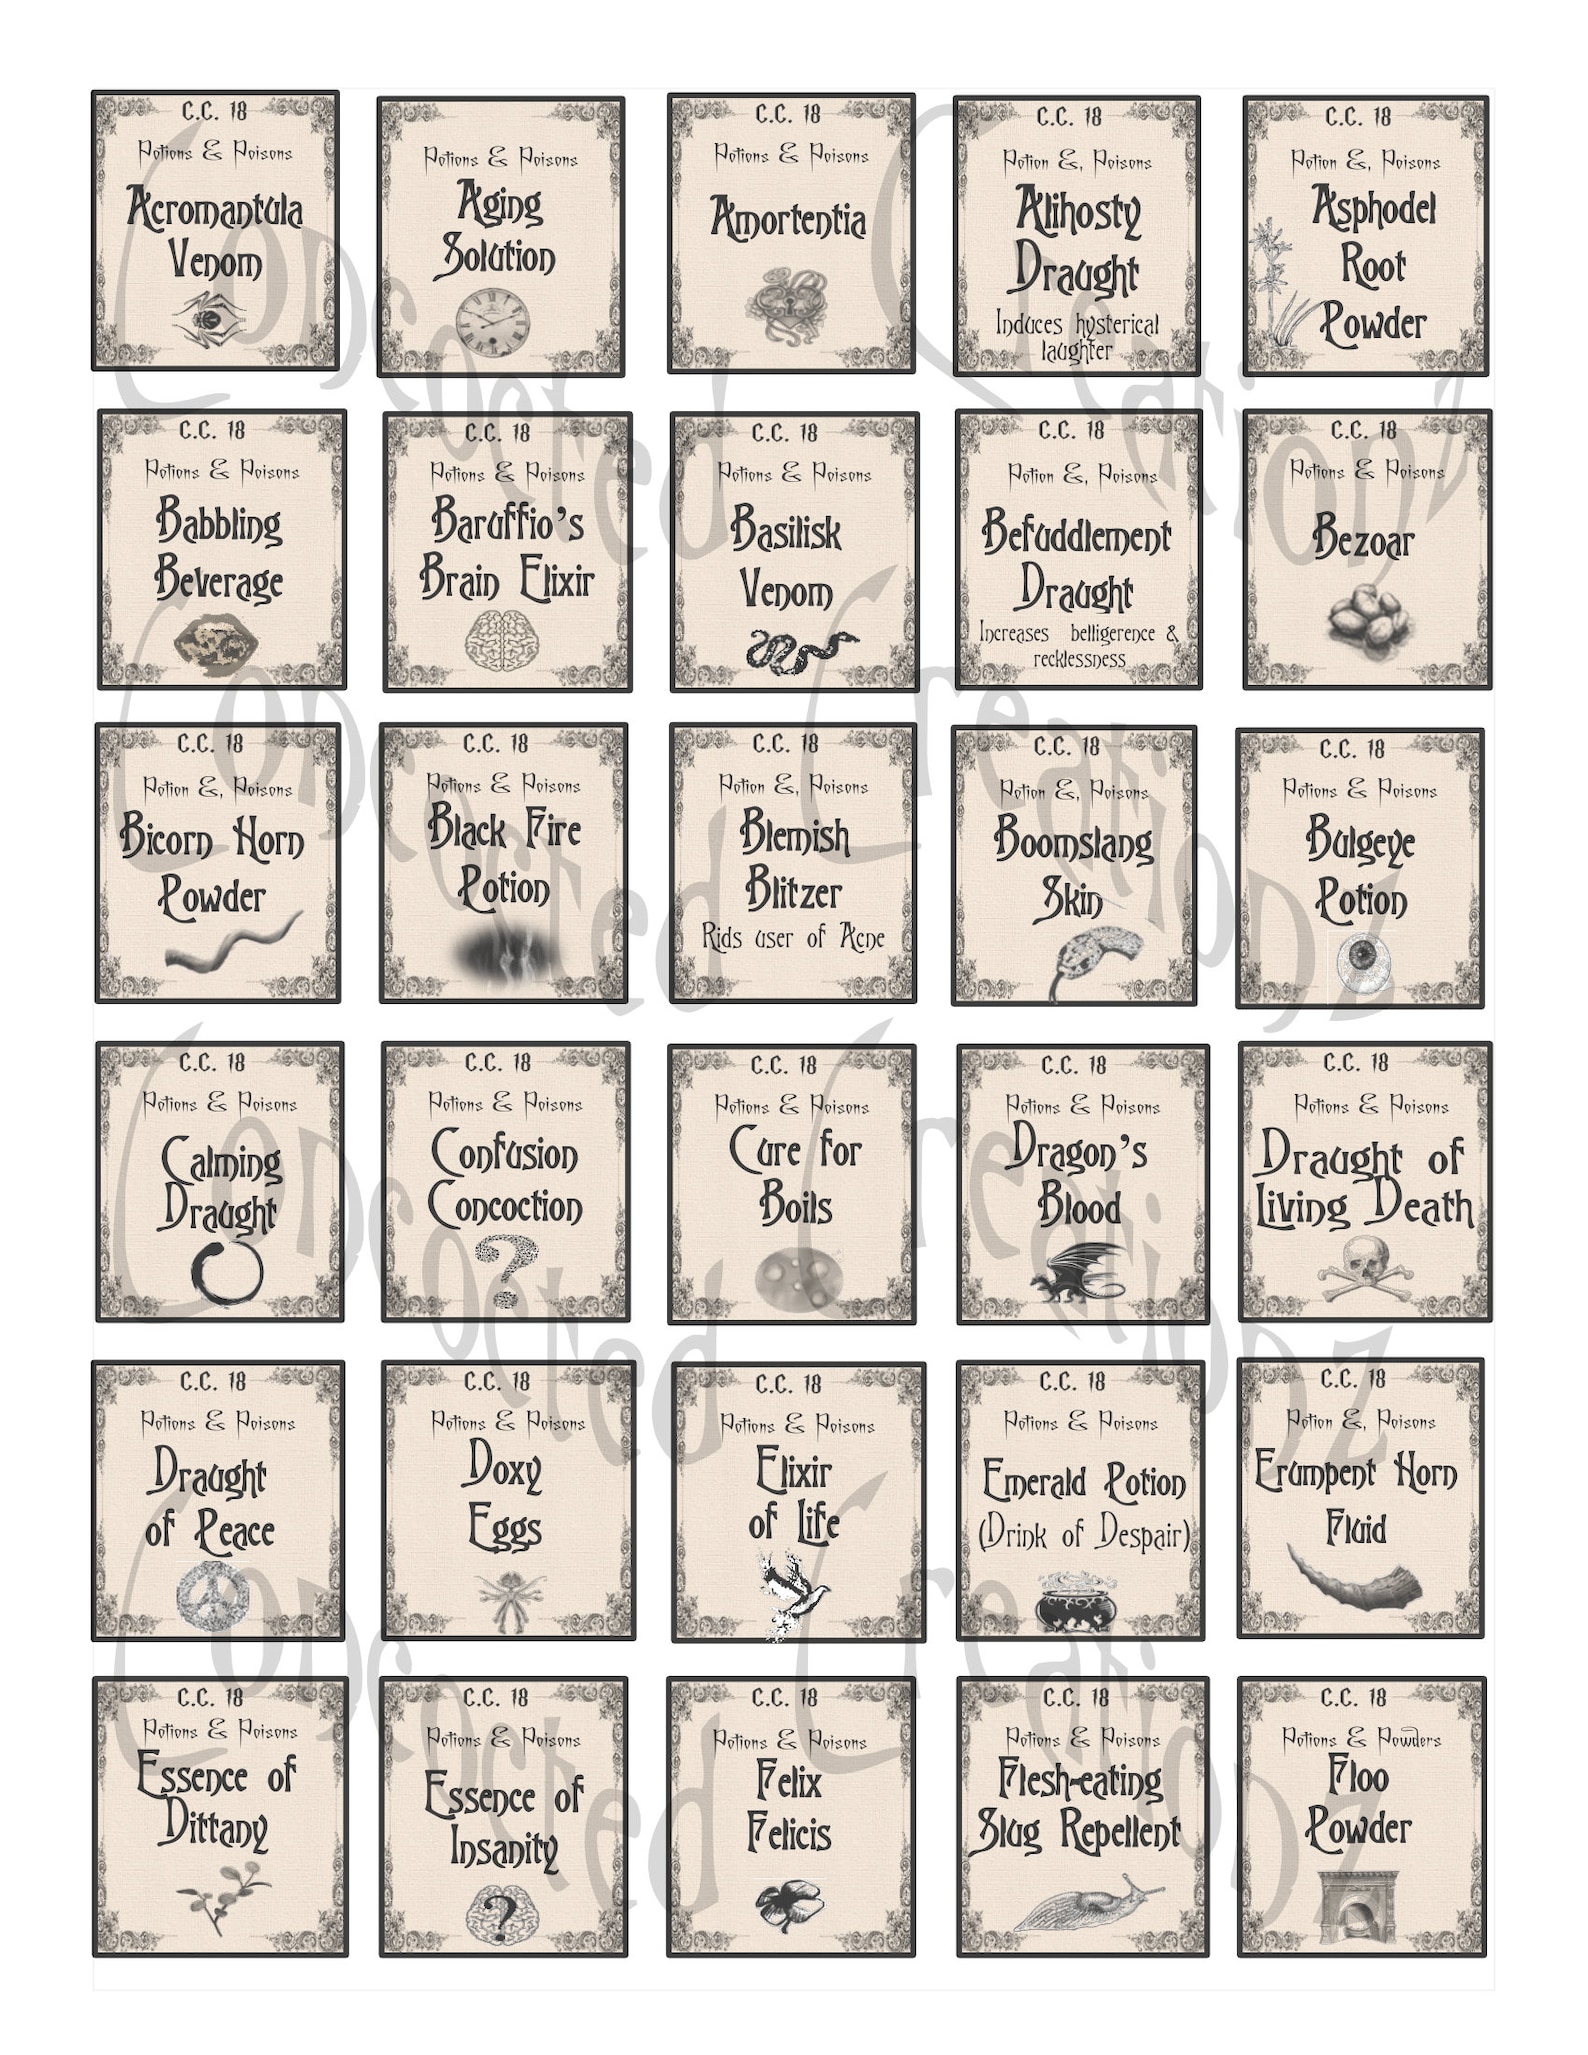 C.C. 18
Potions & Poisons
Acromantula
Venom
Potions & Poisons
Aging
Solution
C.C. 18
Potions & Poisons
Amortentia
C.C. 18
Potion &, Poisons
Alihosty
Draught
Induces hysterical
laughter
C.C. 18
Potion &, Poisons
Asphodel
Root
Powder
C.C. 18
Potions & Poisons
Babbling
Beverage
C.C. 18
Potions & Poisons
Baruffio's
Brain Elixir
C.C. 18
Potions & Poisons
Basilisk
Venom
C.C. 18
Potion &, Poisons
Befuddlement
Draught
Increases belligerence &
recklessness
C.C. 18
Potions & Poisons
Bezoar
C.C. 18
Potion &, Poisons
Bicorn Horn
Powder
C.C. 18
Potions & Poisons
Black Fire
Potion
C.C. 18
Potion &, Poisons
Blemish
Blitzer
Rids user of Acne
C.C. 18
Potion &, Poisons
Boomslang
Skin
C.C. 18
Potions & Poisons
Bulgeye
Potion
C.C. 18
Potions & Poisons
Calming
Draught
C.C. 18
Potions & Poisons
Confusion
Concoction
?
C.C. 18
Potions & Poisons
Cure for
Boils
C.C. 18
Potions & Poisons
Dragon's
Blood
C.C. 18
Potions & Poisons
Draught of
Living Death
C.C. 18
Potions & Poisons
Draught
of Peace
C.C. 18
Potions & Poisons
Doxy
Eggs
C.C. 18
Potions & Poisons
Elixir
of Life
C.C. 18
Potions & Poisons
Emerald Potion
(Drink of Despair)
C.C. 18
Potion &, Poisons
Erumpent Horn
Fluid
C.C. 18
Potions & Poisons
Essence of
Dittany
C.C. 18
Potions & Poisons
Essence of
Insanity
?
C.C. 18
Potions & Poisons
Felix
Felicis
C.C. 18
Potions & Poisons
Flesh-eating
Slug Repellent
C.C. 18
Potions & Powders
Floo
Powder
Concocted Creationz
Concocted Creationz
Concocted Creationz
Concocted Creationz